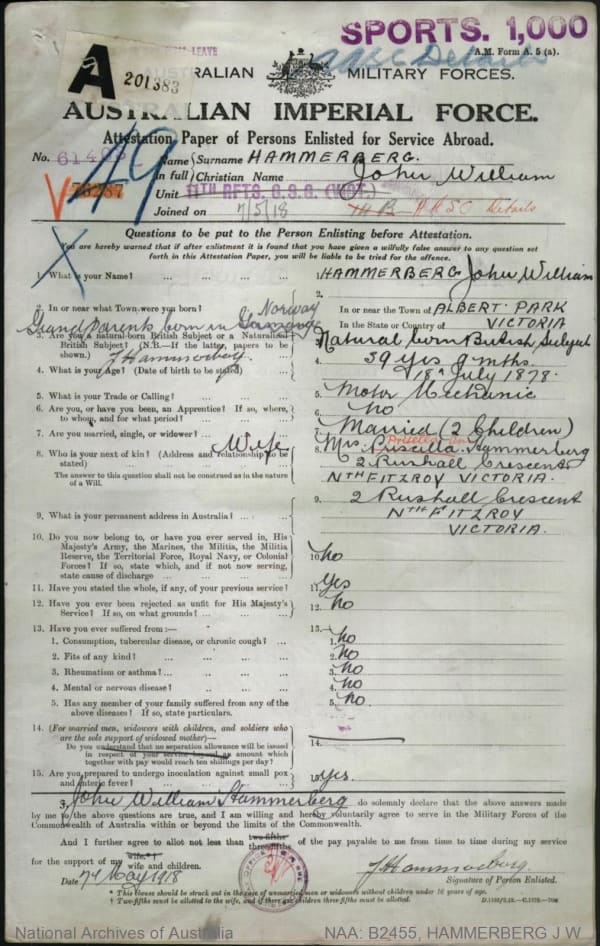 SPORTS. 1,000
LEAVE
A.M. Form A. 5 (a).
A
201383
AUSTRALIAN MILITARY FORCES.
AUSTRALIAN IMPERIAL FORCE.
Attestation Paper of Persons Enlisted for Service Abroad.
49
No. Name Surname HAMMERBERG.
In full Christian Name John William
Unit 11TH RFTS. G.S.G. (VIC.)
Joined on 7/5/18 Details
Questions to be put to the Person Enlisting before Attestation.
You are hereby warned that if after enlistment it is found that you have given a wilfully false answer to any question set
forth in this Attestation Paper, you will be liable to be tried for the offence.
1. What is your Name? ... ... ... 1. HAMMERBERG John William
2. In or near what Town were you born? 2. In or near the Town of ALBERT PARK
In the State or Country of VICTORIA
Norway
Grand Parents born in
3. Are you a natural born British Subject or a Naturalised British Subject? (N.B.—If the latter, papers to be shown.) Natural born British Subject
J Hammerberg
4. What is your Age? (Date of birth to be stated) 4. 39 yrs 9 mths.
18th July 1878.
5. What is your Trade or Calling? ... 5. Motor Mechanic
6. Are you, or have you been, an Apprentice? If so, where, to whom, and for what period? ... 6. No
7. Are you married, single, or widower? ... 7. Married (2 Children)
8. Who is your next of kin? (Address and relationship to be stated) Wife 8. Mrs. Priscilla Hammerberg
2 Rushall Crescent
NTH FITZROY VICTORIA.
The answer to this question shall not be construed as in the nature of a Will.
9. What is your permanent address in Australia? ... 9. 2 Rushall Crescent
NTH FITZROY
VICTORIA.
10. Do you now belong to, or have you ever served in, His Majesty's Army, the Marines, the Militia, the Militia Reserve, the Territorial Force, Royal Navy, or Colonial Forces? If so, state which, and if not now serving, state cause of discharge ... 10. No
11. Have you stated the whole, if any, of your previous service? 11. Yes
12. Have you ever been rejected as unfit for His Majesty's Service? If so, on what grounds? ... 12. No
13. Have you ever suffered from:— 13.
1. Consumption, tubercular disease, or chronic cough? ... 1. No
2. Fits of any kind? ... 2. No
3. Rheumatism or asthma? ... 3. No
4. Mental or nervous disease? ... 4. No
5. Has any member of your family suffered from any of the above diseases? If so, state particulars. 5. No.
14. (For married men, widowers with children, and soldiers who are the sole support of widowed mother)—
Do you understand that no separation allowance will be issued in respect of your service beyond an amount which together with pay would reach ten shillings per day? 14.
15. Are you prepared to undergo inoculation against small pox and enteric fever? 15. Yes.
I, John William Hammerberg do solemnly declare that the above answers made
by me to the above questions are true, and I am willing and hereby voluntarily agree to serve in the Military Forces of the
Commonwealth of Australia within or beyond the limits of the Commonwealth.
And I further agree to allot not less than two-fifths three-fifths of the pay payable to me from time to time during my service
for the support of my wife.*† wife and children.
J Hammerberg.
Date 7th May 1918 Signature of Person Enlisted.
* This clause should be struck out in the case of unmarried men or widowers without children under 16 years of age.
† Two-fifths must be allotted to the wife, and if there are children three-fifths must be allotted.
National Archives of Australia NAA: B2455, HAMMERBERG J W